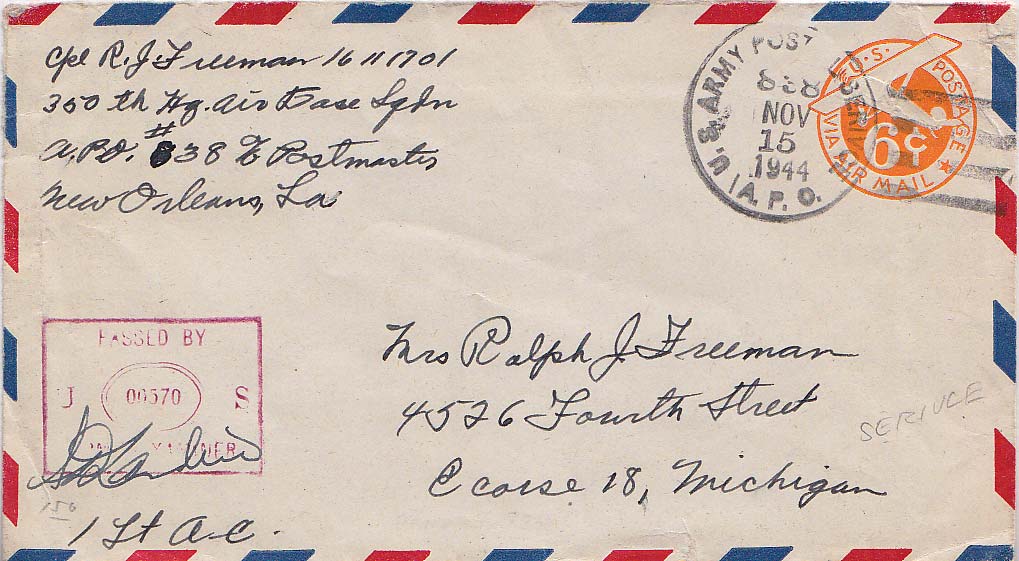 Cpl R. J. Freeman 16111701
350 th Hq. Air Base Sqdn
A.P.O. # 838 % Postmaster,
New Orleans, La
U.S. ARMY POSTAL SERVICE
838
NOV
15
1944
A. P. O.
U.S. POSTAGE
6¢
VIA AIR MAIL
PASSED BY
U 00570 S
ARMY EXAMINER
1 Lt A.C.
150
Mrs Ralph J. Freeman
4526 Fourth Street
Ecorse 18, Michigan
SERIVCE